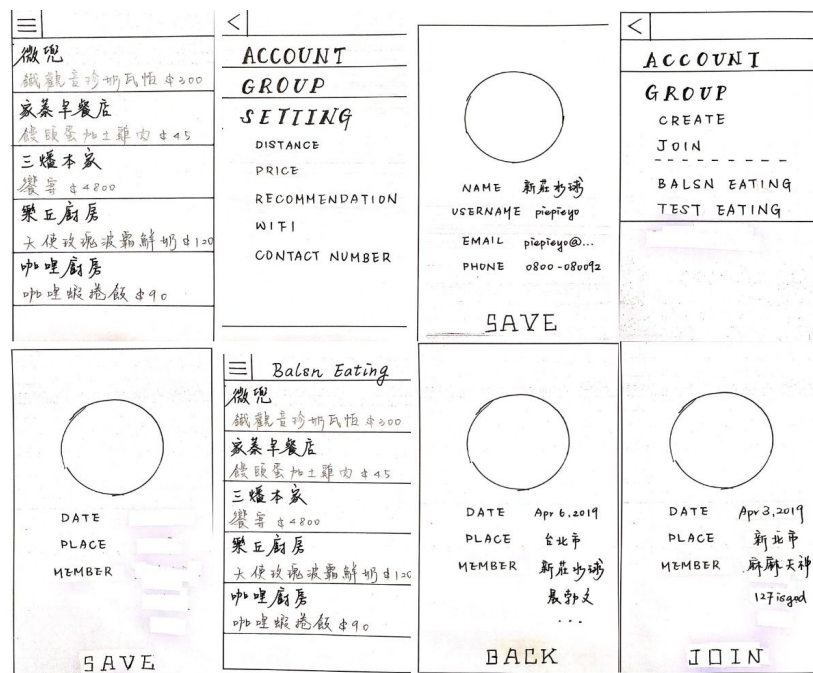 微兜
鐵觀音珍奶瓦恒 $300
家蒸早餐店
饅頭蛋加土雞肉 $45
三燔本家
饗宴 $4800
樂丘廚房
天使玫瑰波霸鮮奶 $120
咖哩廚房
咖哩蝦捲飯 $90
<
ACCOUNT
GROUP
SETTING
DISTANCE
PRICE
RECOMMENDATION
WIFI
CONTACT NUMBER
NAME 新莊水球
USERNAME piepieyo
EMAIL piepieyo@...
PHONE 0800-080092
SAVE
<
ACCOUNT
GROUP
CREATE
JOIN
BALSN EATING
TEST EATING
DATE
PLACE
MEMBER
SAVE
Balsn Eating
微兜
鐵觀音珍奶瓦恒 $300
家蒸早餐店
饅頭蛋加土雞肉 $45
三燔本家
饗宴 $4800
樂丘廚房
天使玫瑰波霸鮮奶 $120
咖哩廚房
咖哩蝦捲飯 $90
DATE Apr 6, 2019
PLACE 台北市
MEMBER 新莊水球
晨郭文
...
BACK
DATE Apr 3, 2019
PLACE 新北市
MEMBER 麻麻天神
127isgod
JOIN